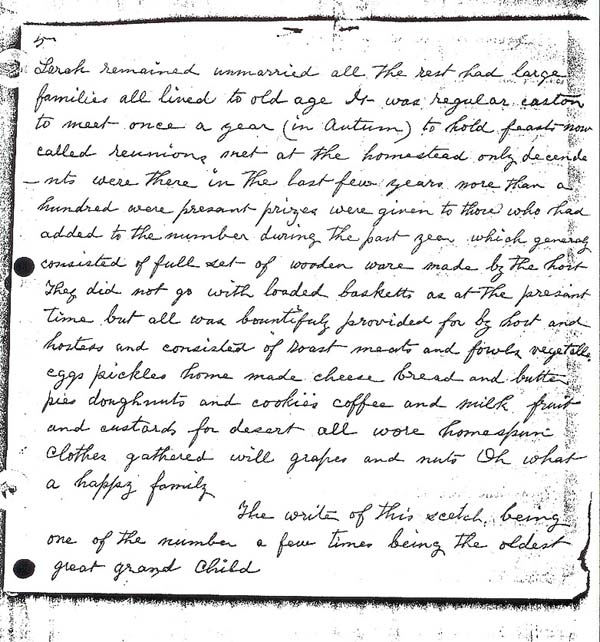 5
Sarah remained unmarried all the rest had large
families all lived to old age It was regular custon
to meet once a year (in Autum) to hold feasts now
called reunions met at the homestead only decende
-nts were there in the last few years more than a
hundred were presant prizes were given to those who had
added to the number during the past year which generaly
consisted of full set of wooden ware made by the host
They did not go with loaded basketts as at the presant
time but all was bountifuly provided for by host and
hostess and consisted of roast meats and fowls vegetables
eggs pickles home made cheese bread and butter
pies doughnuts and cookies coffee and milk fruit
and custards for desert all wore homespun
Clothes gathered will grapes and nuts Oh what
a happy family
The write of this scetch being
one of the number a few times being the oldest
great grand Child